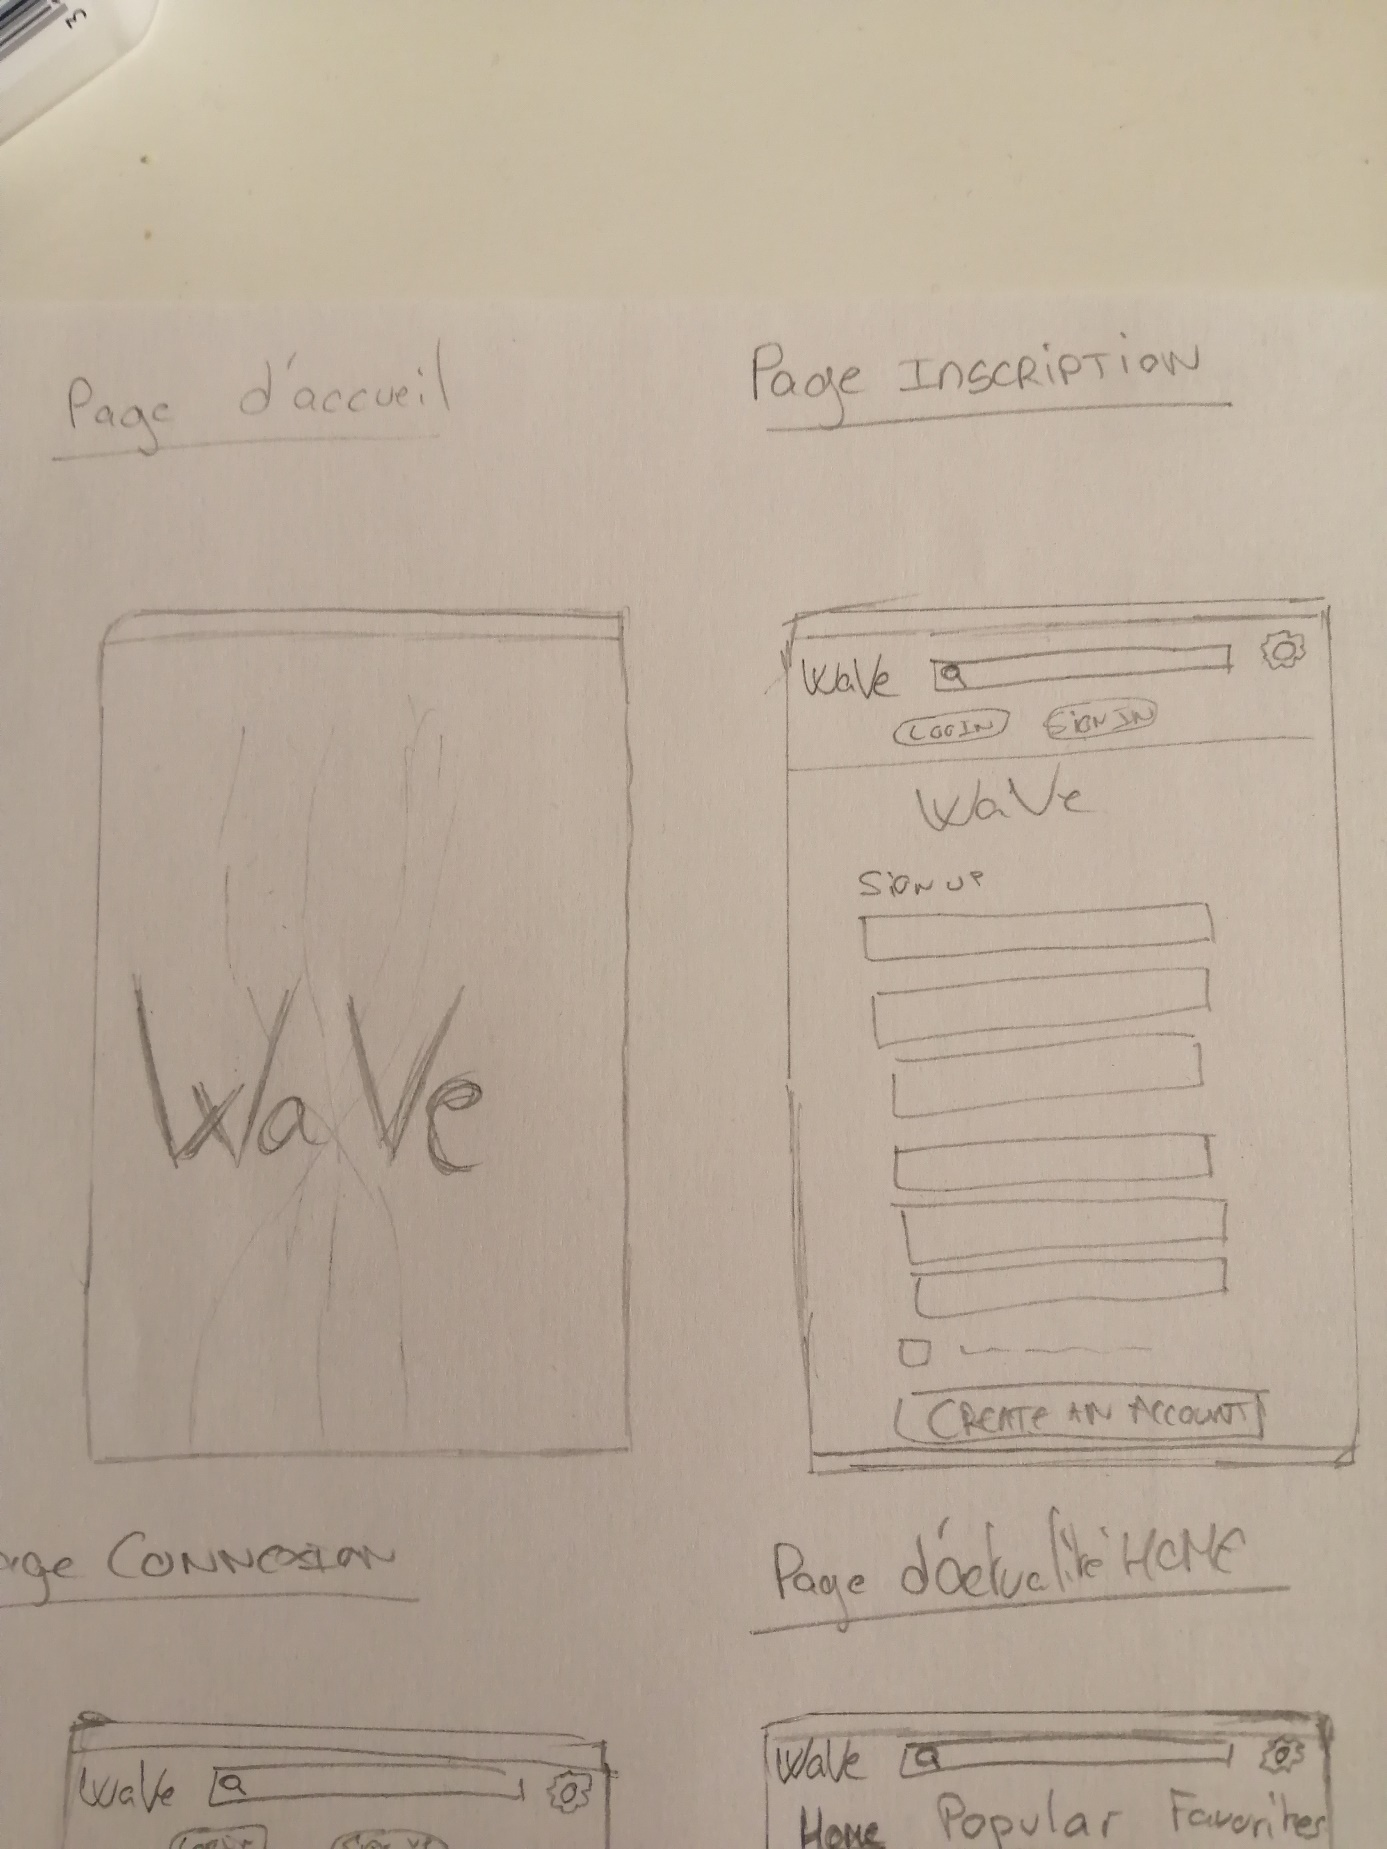 3
Page d'accueil
Page INSCRIPTION
WaVe
WaVe
LOGIN SIGN IN
WaVe
SIGN UP
CREATE AN ACCOUNT
age CONNEXION
Page d'actualité HOME
WaVe
WaVe
Home Popular Favorites